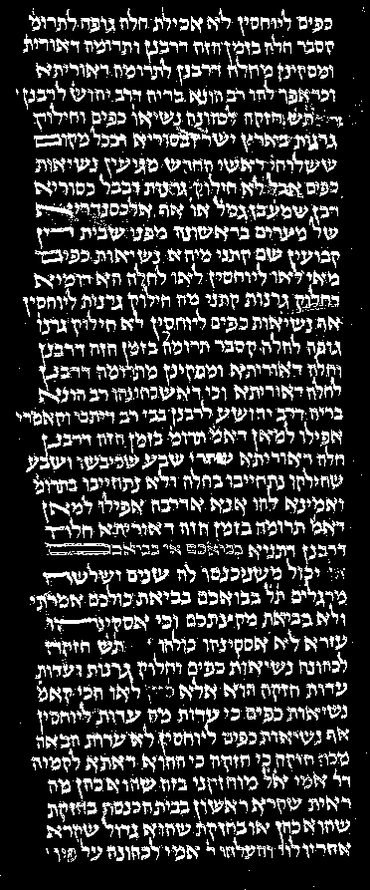 כפים ליוחסין לא אכילת חלה גופה לתרומ
קסבר חלה בזמן הזה דרבנן ותרומה דאורית
ומסקינן מחלה דרבנן לתרומה דאוריתא
וכדאפך להו רב הונא בריה דרב יהושע לרבנן
תש חזקה לכהונה נשיאו כפים וחילוק
גרנות בארץ ישר ובסוריא ובכל מקום
ששלוחי ראשי החדש מגיעין נשיאות
כפים אבל לא חילוק גרנות ובבל כסוריא
רבן שמעבן גמל או אף אלכסנדריא
של מצרים בראשונה מפני שבית דין
קבועין שם קתני מיהא נשיאות כפים
מאי לאו ליוחסין לאו לחלה הא דומיא
דחלוק גרנות קתני מה חילוק גרנות ליוחסין
אף נשיאות כפים ליוחסין לא חילוק גרנו
גופה לחלה קסבר תרומה בזמן הזה דרבנן
וחלה דאוריתא ומסקינן מתרומה דרבנן
לחלה דאוריתא וכי דאשכחינהו רב הונא
בריה דרב יהושע לרבנן בבי רב דיתבי וקאמרי
אפילו למאן דאמ תרומ בזמן הזה דרבנן
חלה דאוריתא שהרי שבע שכיבשו ושבע
שחילקו נתחייבו בחלה ולא נתחייבו בתרומ
ואמינא להו אנא אדרבה אפילו למאן
דאמ תרומה בזמן הזה דאוריתא חלה
דרבנן דתניא בבואכם אי בבואכם
יכול משנכנסו לה שנים ושלשה
מרגלים תל בבואכם בביאת כולכם אמרתי
ולא בביאת מקצתכם וכי אסקינהו
עזרא לא אסקינהו כולהו תש חזקה
לכהונה נשיאות כפים וחילוק גרנות ועדות
עדות חזקה היא אלא לאו הכי קאמ
נשיאות כפים כי עדות מה עדות ליוחסין
אף נשיאות כפים ליוחסין לא עדות הבאה
מכח חזקה כי חזקה כי ההוא דאתא לקמיה
דר אמי אמ ל מוחזקני בזה שהוא כהן מה
ראית שקרא ראשון בבית הכנסת בחזקת
שהוא כהן או בחזקת שהוא גדול שקרא
אחריו לוי והעלהו ר אמי לכהונה על פיו